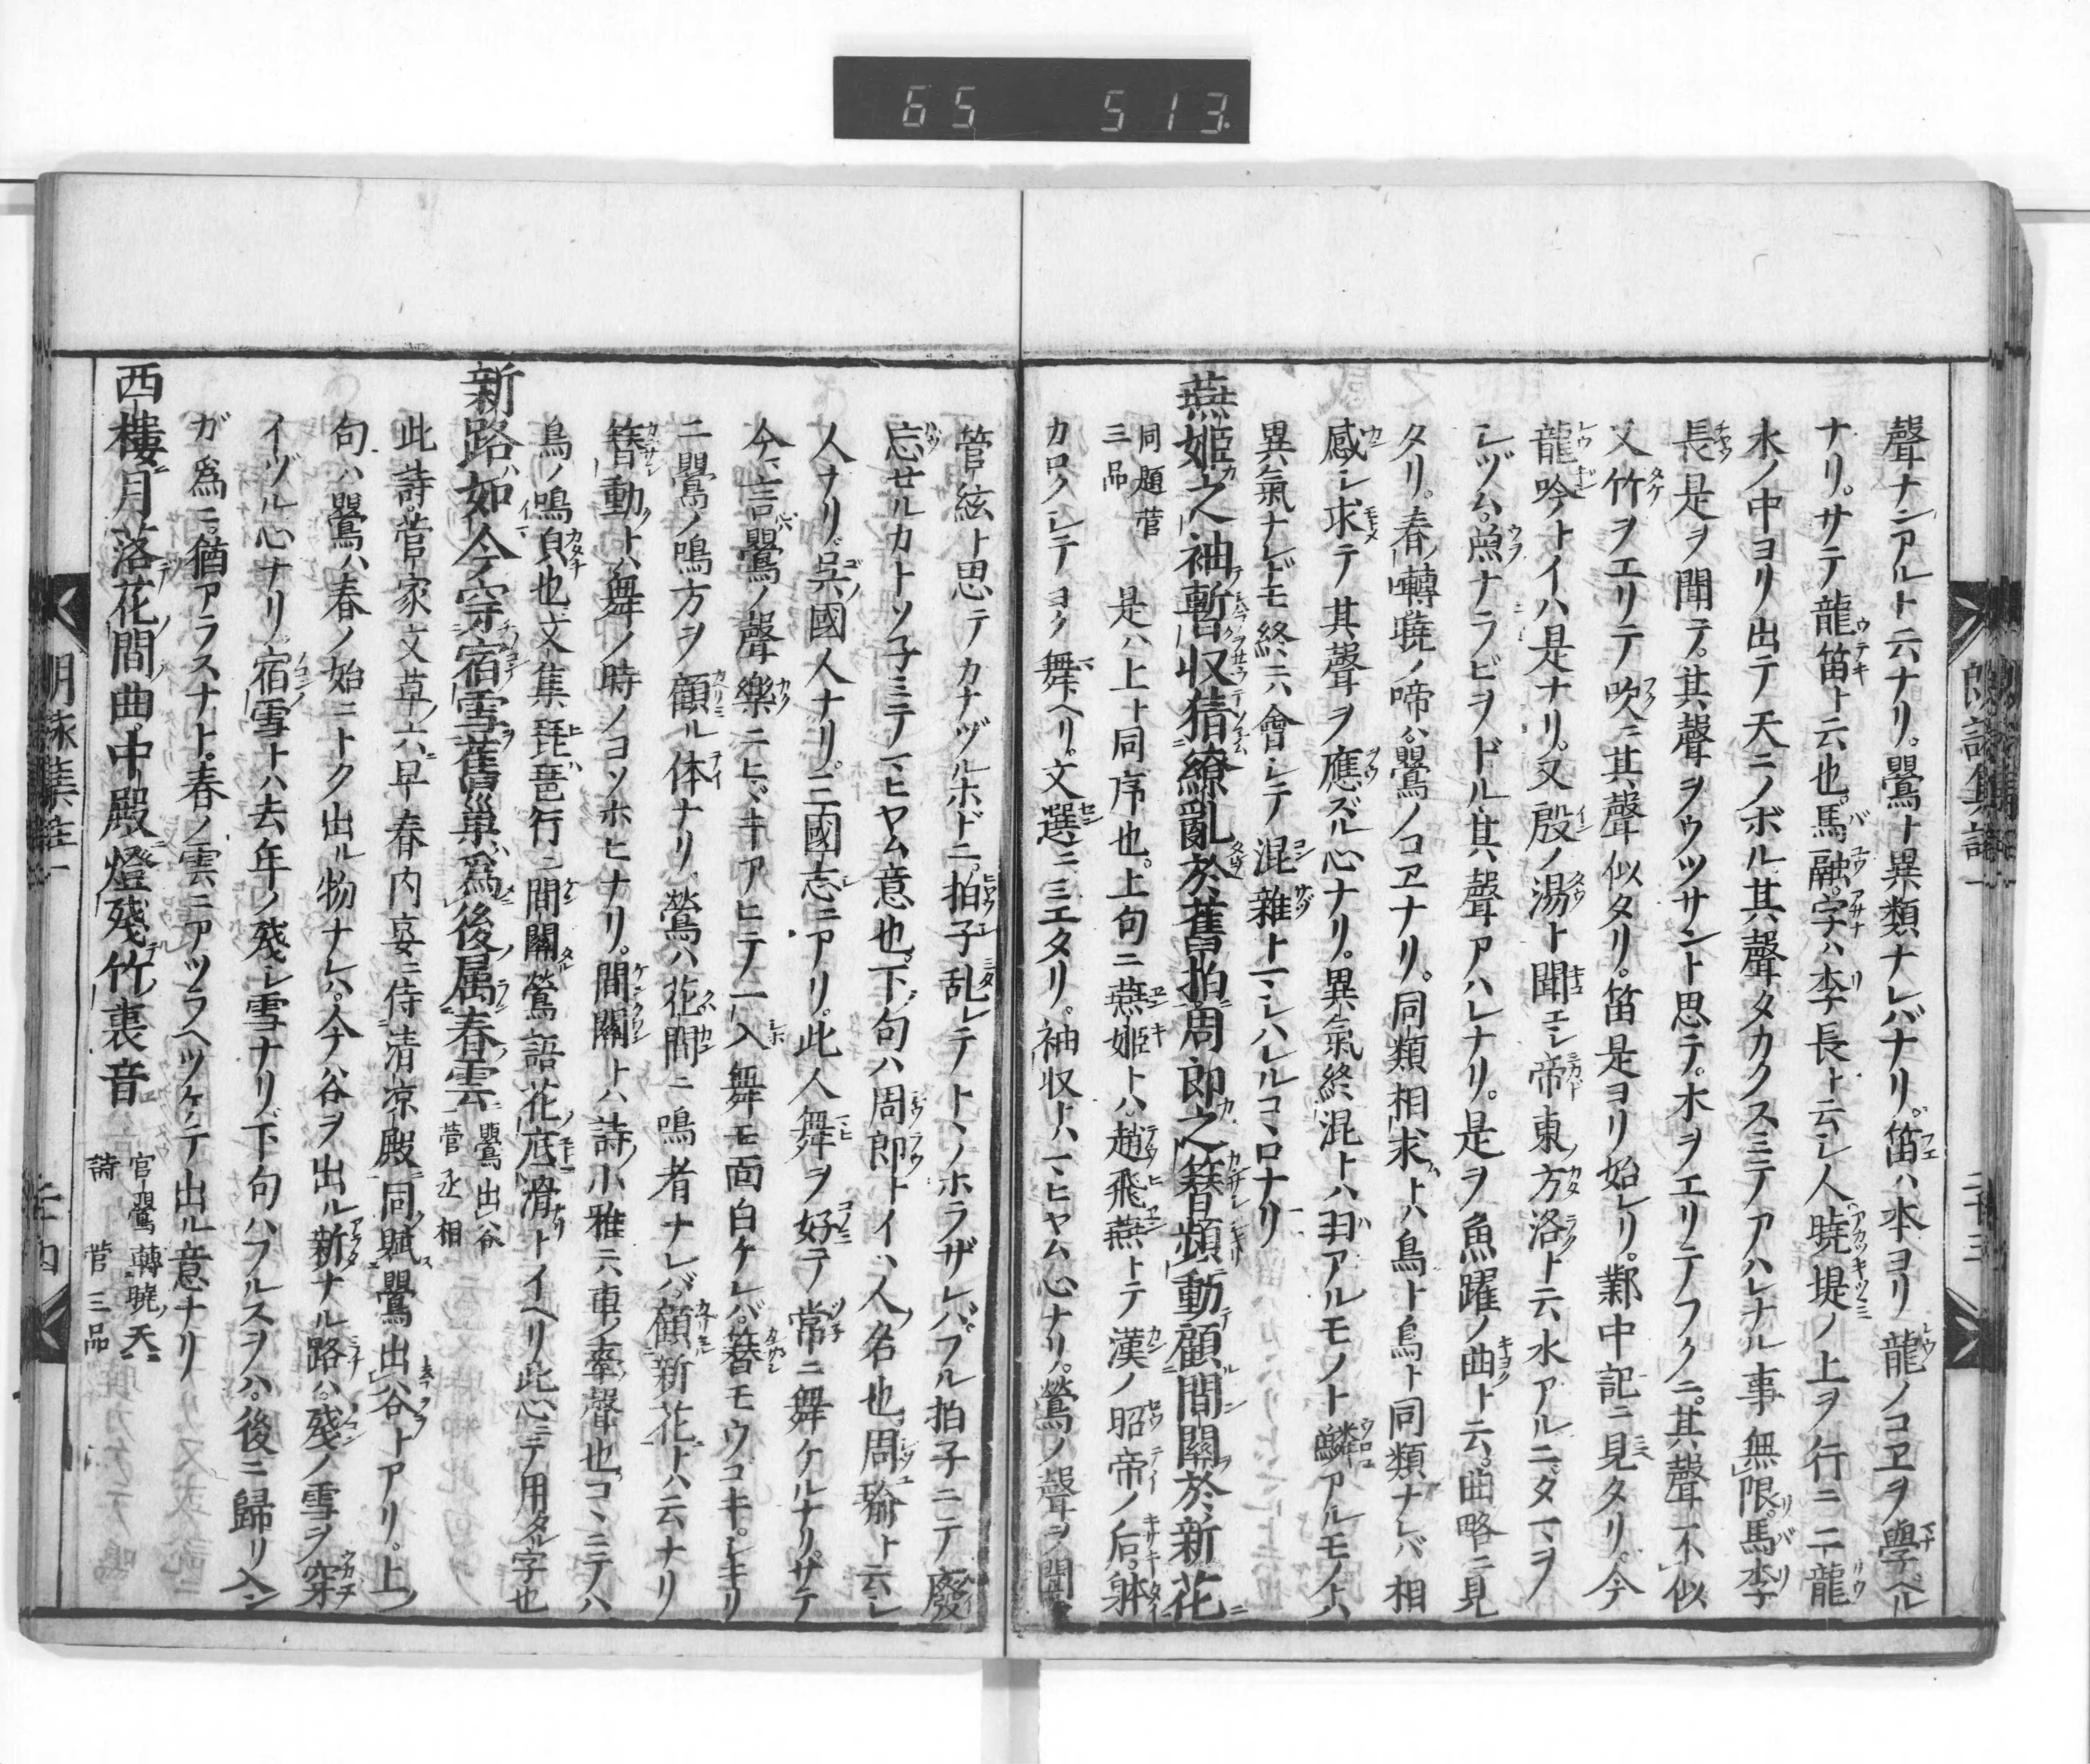 65 513
聲ナンアルト云ナリ。鸎ト異類ナレバナリ。笛ハ本ヨリ龍ノコヱヲ學ベル
ナリ。サテ龍笛ト云也。馬融字ハ李長ト云シ人。曉堤ノ上ヲ行ニ二龍
水ノ中ヨリ出テ天ニノボル其聲タカクスミテアハレナル事無限。馬李
長是ヲ聞テ。其聲ヲウツサント思テ。木ヲエリテフクニ。其聲不似
又竹ヲエリテ吹ニ其聲似タリ。笛是ヨリ始レリ。鄴中記ニ見タリ。今
龍吟トイハ是ナリ。又殷ノ湯ト聞エシ帝東ノ方洛ト云水アルニ。タマヲ
シヅム。魚ナラビヲドル其聲アハレナリ。是ヲ魚躍ノ曲ト云。曲略ニ見
タリ。春囀曉ノ啼ハ鸎ノコヱナリ。同類相求トハ鳥ト鳥ト同類ナレバ相
感シ求テ其聲ヲ應ズル心ナリ。異氣終混トハ羽アルモノト鱗アルモノトハ
異氣ナレドモ終ニハ會シテ混雜トマシハレルコヽロナリ
燕姬之袖暫収猜繚亂於舊拍周郎之簪頻動顧間關於新花
同題菅
三品
是ハ上ト同序也。上句ニ燕姬トハ。趙飛燕トテ漢ノ昭帝ノ后。躰
カロクシテヨク舞ヘリ。文選ニミエタリ。袖収トハマヒヤム心ナリ。鶯ノ聲ヲ聞
管絃ト思テカナヅルホドニ。拍子乱レテトヽノホラザレバ。フル拍子ニテ廢
忘セルカトソ子ミテマヒヤム意也。下句ハ周郎トイハ人ノ名也。周瑜ト云シ
人ナリ。呉國人ナリ。三國志ニアリ。此人舞ヲ好テ常ニ舞ケルナリ。サテ
今言ハ鸎ノ聲樂ニヒヾキアヒテ一入舞モ面白ケレバ。簪モウコキ。シキリ
ニ鸎ノ鳴方ヲ顧ル体ナリ。鶯ハ花間ニ鳴者ナレバ。顧新花トハ云ナリ
簪動トハ舞ノ時ノヨソホヒナリ。間關トハ詩ノ小雅ニハ車ノ牽聲也。コヽニテハ
鳥ノ鳴皃也。文集琵琶行ニ間關鶯語花底滑トイヘリ此心ニテ用タル字也
新路如今穿宿雪舊巢爲後属春雲
鸎出谷
菅丞相
此詩。菅家文草六早春内宴ニ侍清凉殿同賦鸎出谷トアリ。上ノ
句ハ鸎ハ春ノ始ニトク出ル物ナレハ。今ハ谷ヲ出ル新ナル路ハ。殘ノ雪ヲ穿
イヅル心ナリ。宿雪トハ去年ノ殘シ雪ナリ。下句ハフルスヲハ。後ニ歸リ入ン
ガ爲ニ。猶アラスナト。春ノ雲ニアツラヘツケテ出ル意ナリ
西樓月落花間曲中殿燈殘竹裏音
宮鸎囀曉天
詩 菅三品
朗詠集註一